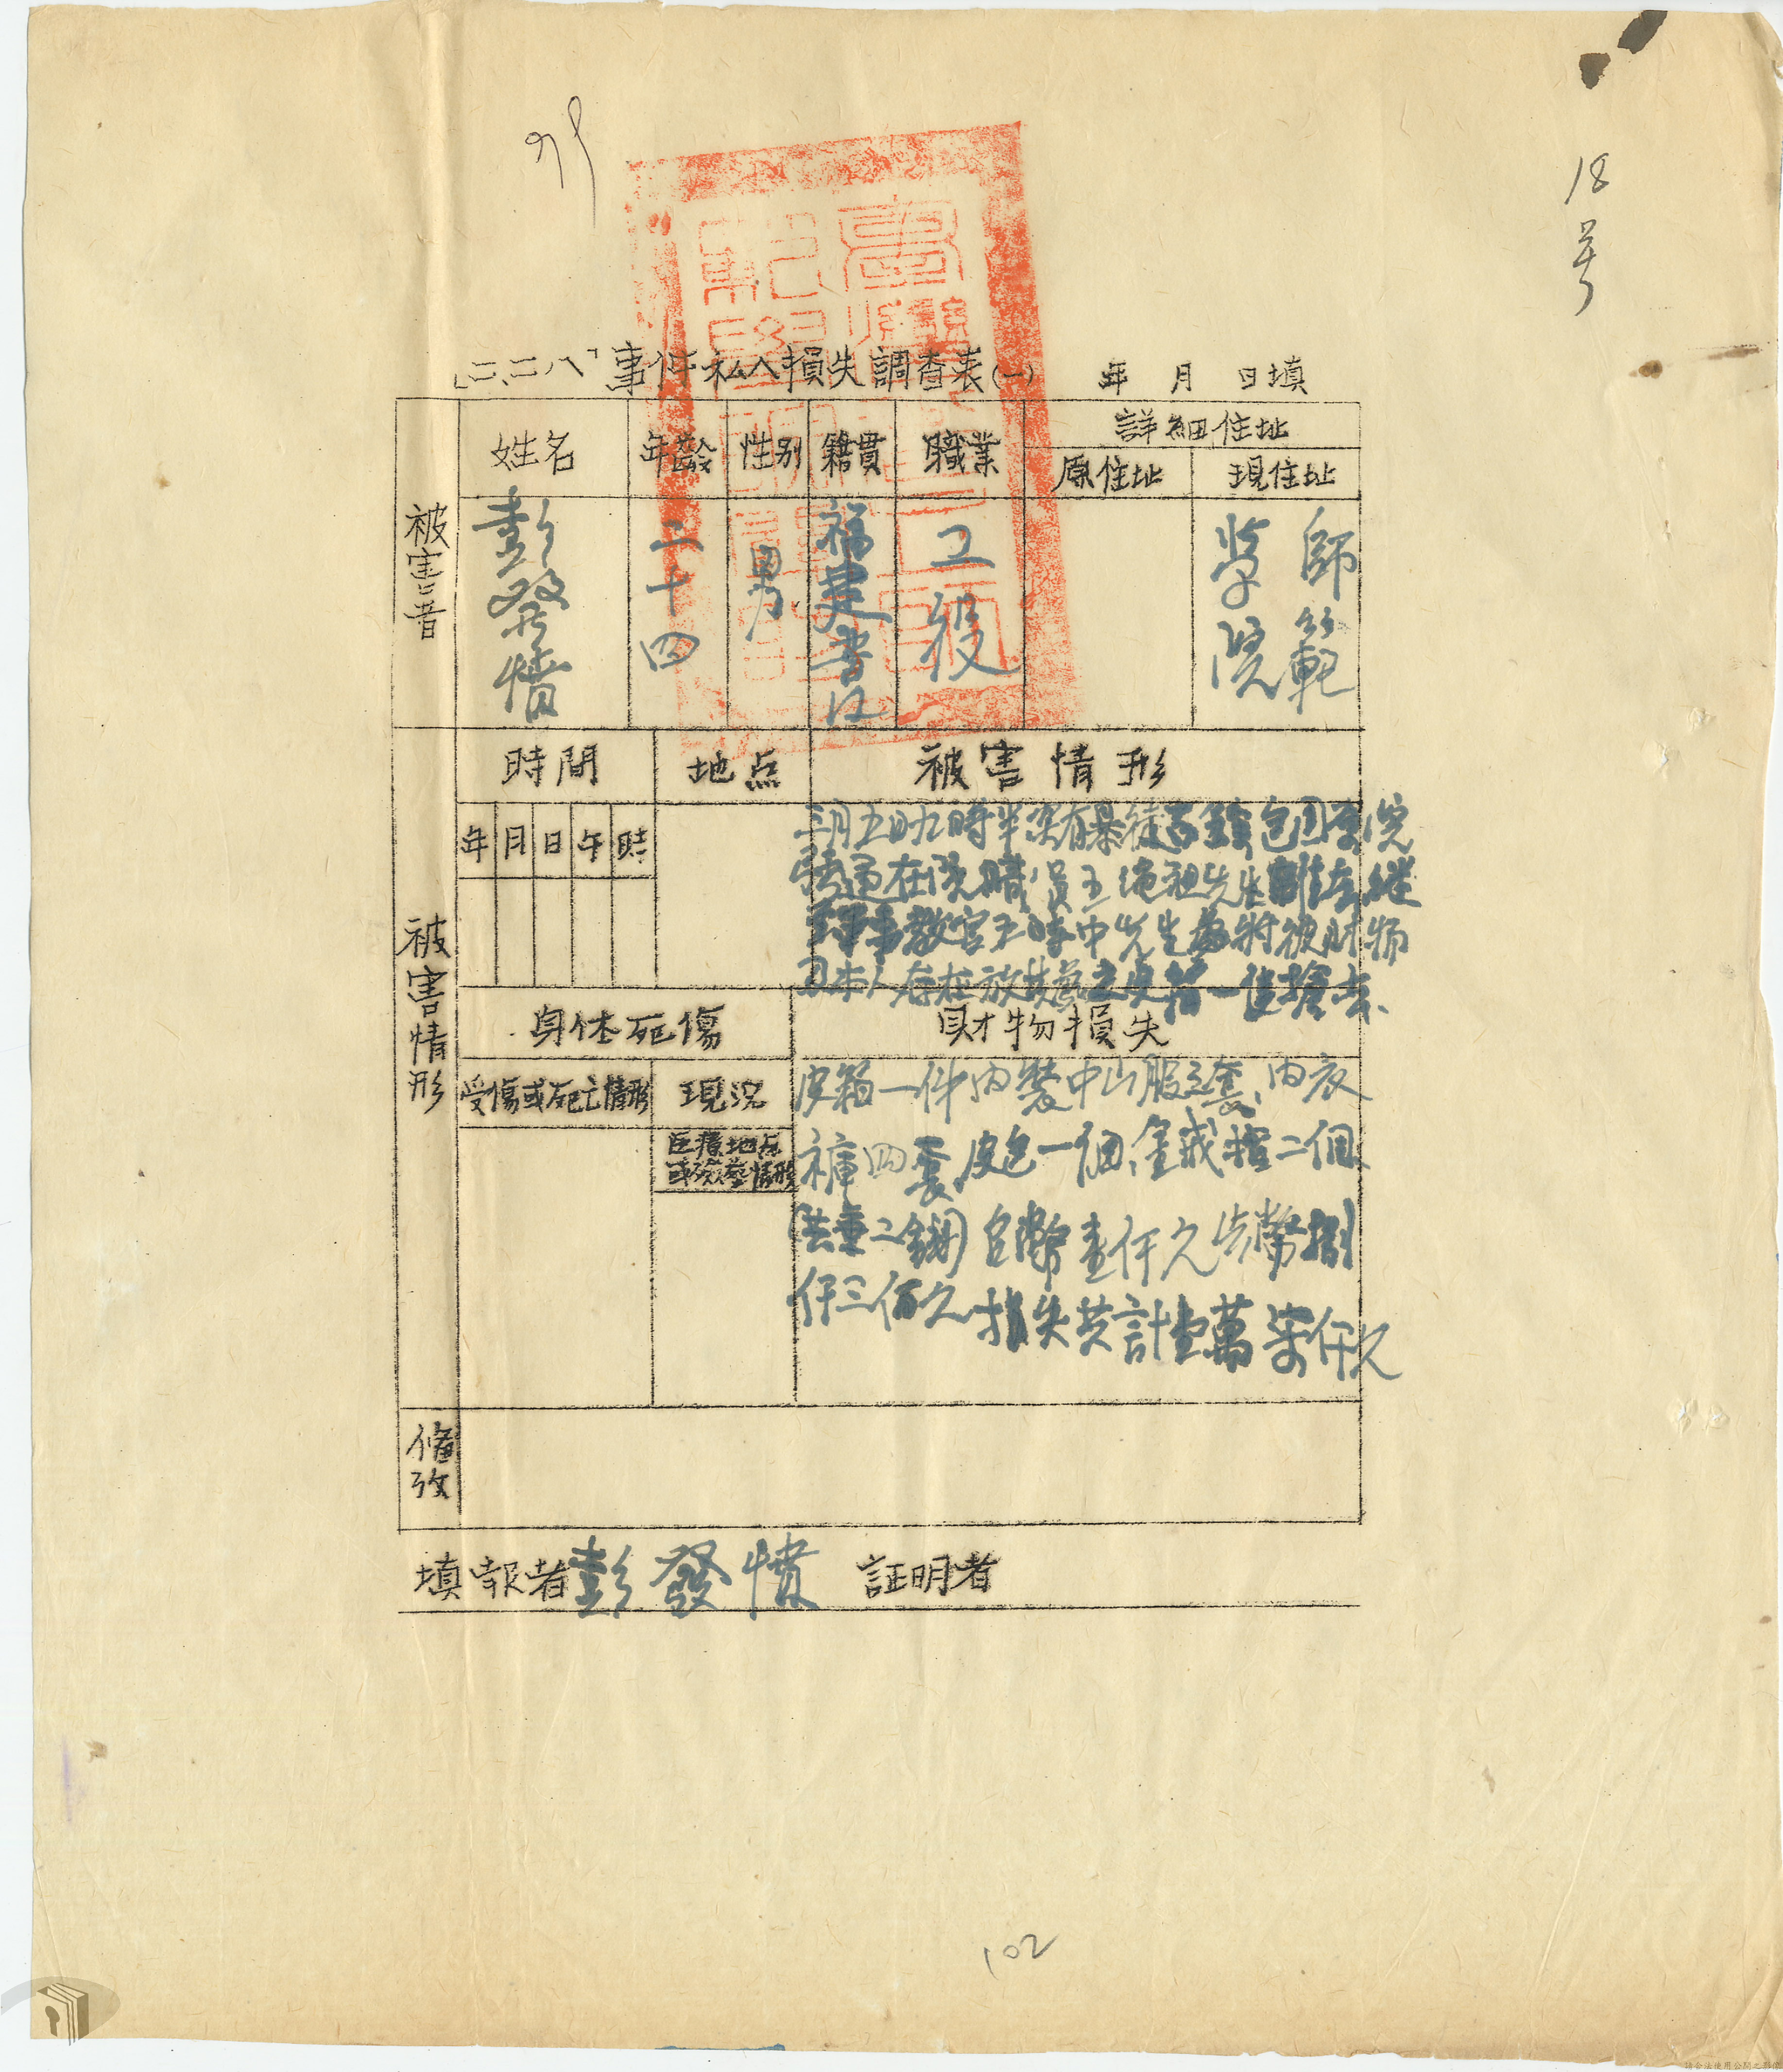 18号
「二.二八」事件私人損失調查表(一) 年 月 日填
被害者
姓名 年齡 性別 籍貫 職業 詳細住址
原住址 現住址
彭發憤 二十四 男 福建晋江 工役 師範學院
被害情形
時間 地点 被害情形
年 月 日 午 時
三月五日九時半突有暴徒百餘包囲本院
強迫在院職員王 祖先生離去継
軍事教官王 中先生 將彼財物
及本人存在放 之皮箱一隻搶去、
身体死傷 財物損失
受傷或死亡情形 現況
医療地点或殮葬情形
皮箱一件內裝中山服 套、內衣
褲四套、皮包一個、金戒指二個、
(共重二錢) 台幣壹仟元 法幣捌
仟三佰元 損失共計壹萬柒仟元
備攷
填報者彭發憤 証明者
102